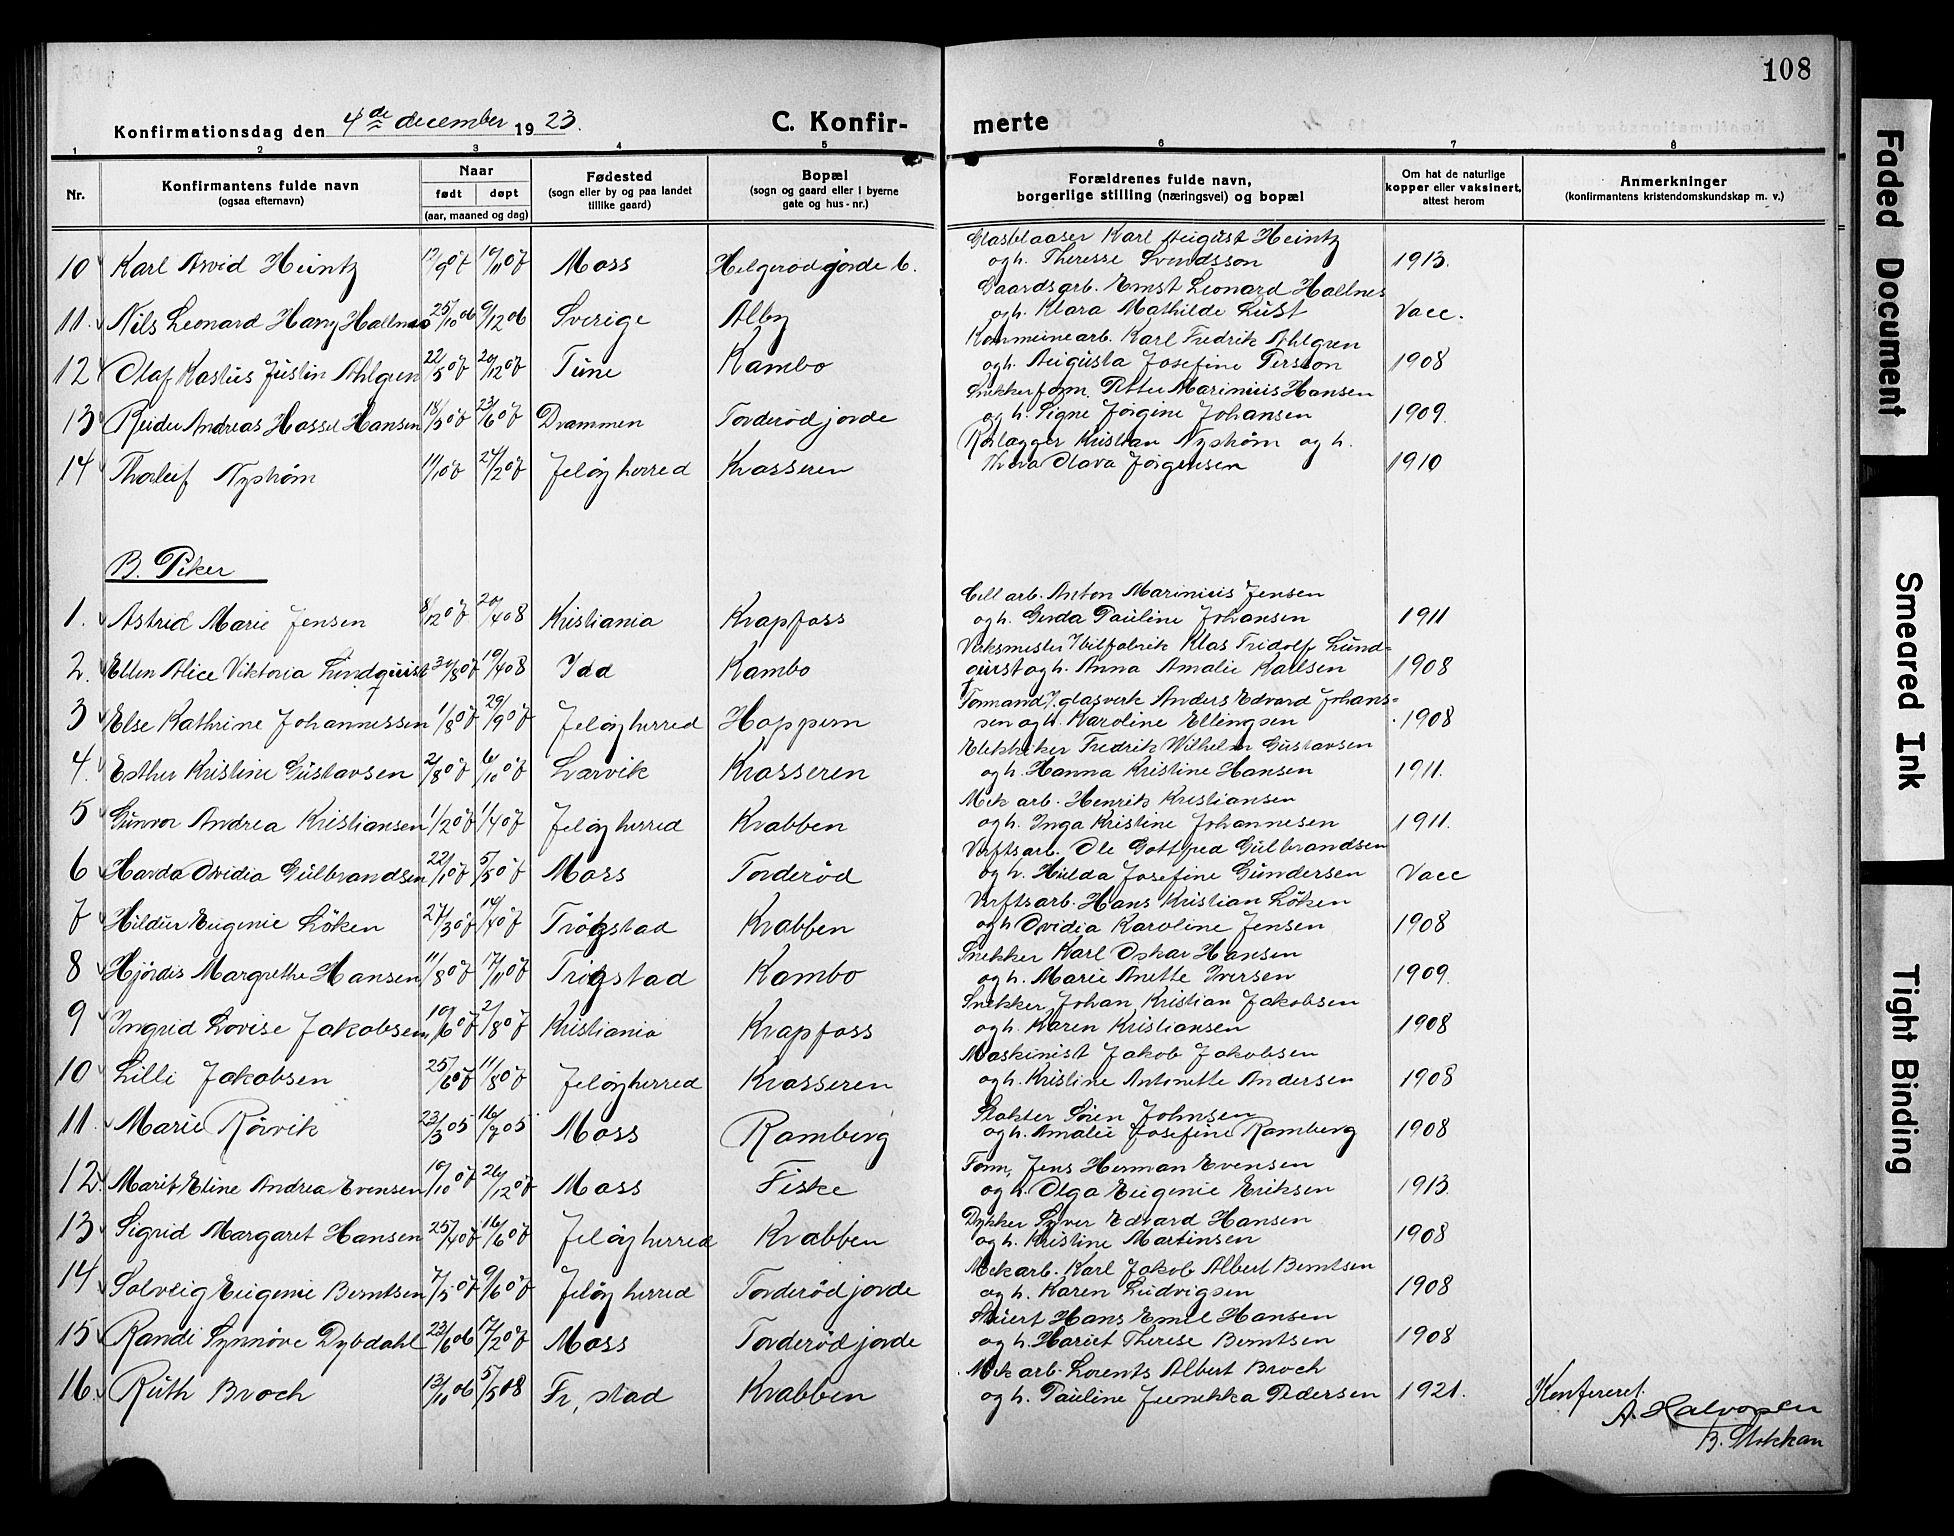 108
Konfirmationsdag den 4de december 1923.
C. Konfir-
merte
1 2 3 4 5 6 7 8
Nr.
Konfirmantens fulde navn
(ogsaa efternavn)
Naar
født døpt
(aar, maaned og dag)
Fødested
(sogn eller by og paa landet
tillike gaard)
Bopæl
(sogn og gaard eller i byerne
gate og hus-nr.)
Forældrenes fulde navn,
borgerlige stilling (næringsvei) og bopæl
Om hat de naturlige
kopper eller vaksinert,
attest herom
Anmerkninger
(konfirmantens kristendomskundskap m. v.)
Glasblaaser Karl August Heintz
10 Karl Arvid Heintz 17/9 07 10/11 07 Moss Helgerødgjorde b. og h. Therese Svendsson 1913.
Gaardsarb. Ernst Leonard Hallnes
11. Nils Leonard Hallnes 25/10 06 9/12 06 Sverige Alby og h. Klara Mathilde Lust Vacc.
Kommunearb. Karl Fredrik Ahlgren
12 Olaf Kastus Justin Ahlgren 22/5 07 20/12 07 Tune Kambo og h. Augusta Josefine Persson 1908
Snekkerform. Petter Marinius Hansen
13 Reidar Andreas Hassel Hansen 18/5 07 23/6 07 Drammen Torderødjorde og h. Signe Jørgine Johansen 1909.
Rørlægger Kristian Nyström og h.
14 Thorleif Nyström 1/1 07 24/2 07 Jeløy herred Krasseren Thora Olava Jørgensen 1910
B. Piker
Cell arb. Anton Marinius Jensen
1. Astrid Marie Jensen 8/12 07 20/4 08 Kristiania Krapfoss og h. Gerda Pauline Johansen 1911
Verksmester I bilfabrik Klas Fridolf Lund-
2. Ellen Alice Viktoria Lundquist 30/8 07 19/4 08 Idd Kambo quist og h. Anna Amalie Karlsen 1908
Formand I glasverk Anders Edvard Johans-
3 Else Kathrine Johannessen 1/8 07 29/9 07 Jeløy herred Hoppern sen og h. Karoline Ellingsen 1908
Elektriker Fredrik Wilhelm Gustavsen
4. Esther Kristine Gustavsen 2/8 07 6/10 07 Larvik Krasseren og h. Hanna Kristine Hansen 1911.
Mek arb. Henrik Kristiansen
5 Gunvor Andrea Kristiansen 1/2 07 1/4 07 Jeløy herred Krabben og h. Inga Kristine Johannesen 1911.
Verftsarb. Ole Gottfred Gulbrandsen
6 Harda Ovidia Gulbrandsen 22/1 07 5/5 07 Moss Torderød og h. Hulda Josefine Gundersen Vacc
Verftsarb. Hans Kristian Løken
7 Hildur Eugenie Løken 27/3 07 14/4 07 Trøgstad Krabben og h Ovidia Karoline Jensen 1908
Snekker Karl Oskar Hansen
8 Hjørdis Margrethe Hansen 11/8 07 17/11 07 Trøgstad Kambo og h. Marie Anette Iversen 1909.
Snekker Johan Kristian Jakobsen
9 Ingrid Lovise Jakobsen 10/6 07 2/8 07 Kristiania Krapfoss og h. Karen Kristiansen 1908
Maskinist Jakob Jakobsen
10 Lilli Jakobsen 25/6 07 11/8 07 Jeløy herred Krasseren og h. Kristine Antonette Andersen 1908
Slakter Søren Johnsen
11. Marie Rørvik 23/3 05 16/7 05 Moss Ramberg og h. Amalie Josefine Ramberg 1908
Form, Jens Herman Evensen
12. Marit Eline Andrea Evensen 10/10 07 26/12 07 Moss Fiske og h. Olga Eugenie Eriksen 1913.
Dykker Syver Edvard Hansen
13 Sigrid Margaret Hansen 25/4 07 16/6 07 Jeløy herred Krabben og h. Kristine Martinsen 1908
Mekarb. Karl Jakob Albert Berntsen
14 Solveig Eugenie Berntsen 7/5 07 9/6 07 Jeløy herred Torderødjorde og h. Karen Ludvigsen 1908
Stuert Hans Emil Hansen
15 Randi Synnøve Dybdahl 23/6 06 17/2 07 Moss Torderødjorde og h. Hariet Therese Berntsen 1908
Mek arb. Lorents Albert Broch
16. Ruth Broch 13/10 06 5/5 08 Fr, stad Krabben og h. Pauline Pedersen 1921. Konfereret.
A. Halvorsen
B. Stokkan
Faded Document
Smeared Ink
Tight Binding